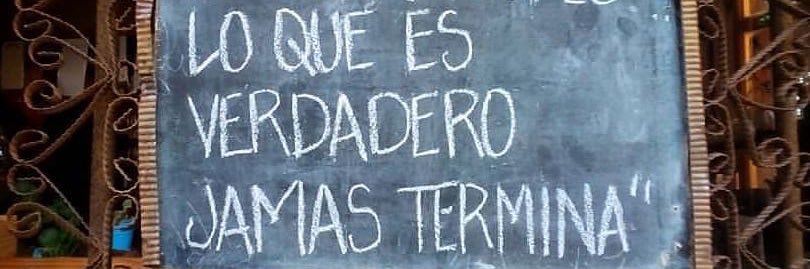 LO QUE ES
VERDADERO
JAMAS TERMINA"